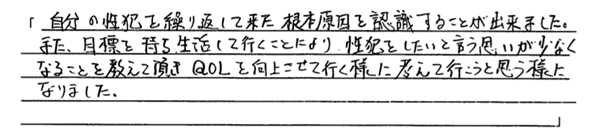 「自分の性犯を繰り返して来た根本原因を認識することが出来ました。
また、目標を持ち生活して行くことにより性犯をしたいと言う思いが少なく
なることを教えて頂きQOLを向上させて行く様に考えて行こうと思う様に
なりました。
」